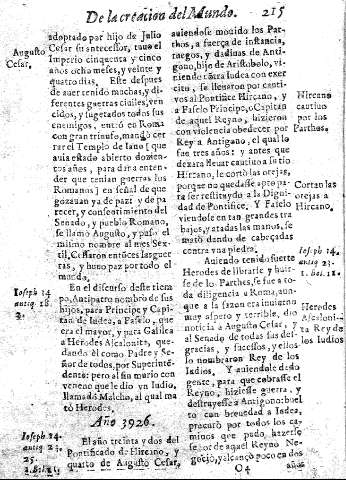 De la creacion del Mundo. 215
Augusto
Cesar.
adoptado por hijo de Julio
Cesar su antecessor, tuuo el
Imperio cinquenta y cinco
años ocho meses, y veinte y
quatro dias. Este despues
de auer tenido muchas, y di-
ferentes guerras ciuiles, ven-
cidos, y sugetados todos sus
enemigos, entrò en Roma
con gran triunfo, mandò cer
rar el Templo de Iano [que
auia estado abierto docien-
tos años, para dar a enten-
der que tenian guerras los
Romanos] en señal de que
gozauan ya de paz y de pa-
recer, y consentimiento del
Senado, y pueblo Romano,
se llamò Augusto, y puso el
mismo nombre al mes Sex-
til, Cessaron entōces las guer
ras, y huuo paz por todo el
mundo.
Ioseph 14
antiq. 18.
En el discurso deste tiem
po, Antipatro nombrò de sus
hijos, para Principe y Capi-
tan de Iudea, a Faselo, que
era el mayor, y para Galilea
a Herodes Ascalonita, que-
dando èl como Padre y Se-
ñor de todos, por Superinte-
dente: pero al fin murio con
veneno que le dio vn Iudio,
llamado Malcho, al qual ma
tò Herodes.
Año 3926.
Ioseph 14.
antiq 23.
25.
El año treinta y dos del
Pontificado de Hircano, y
quarto de Augusto Cesar,
auiendose mouido los Par-
thos, a fuerça de instancia,
ruegos, y dadiuas de Anti-
gono, hijo de Aristobolo, vi-
niendo contra Iudea con exer
cito, se lleuaron por cauti-
vos al Pontifice Hircano, y
a Faselo Principe, o Capitan
de aquel Reyno, hizieron
con violencia obedecer por
Rey a Antigono, el qual lo
fue tres años: y antes que
dexara lleuar cautiuo a su tio
Hircano, le cortò las orejas,
porque no quedasse apto pa-
ra ser restituydo a la Digni-
dad de Pontifice. Y Faselo
viendose en tan grandes tra
bajos, y atadas las manos, se
matò dando de cabeçadas
contra vna piedra.
Hircano
cautiuo
por los
Parthos.
Cortan las
orejas a
Hircano.
Ioseph 14.
antiq 23.
Auiendo tenido suerte
Herodes de librarse y huir-
se de los Parthos, se fue a to-
da diligencia a Roma, aun-
que a la sazon era inuierno
muy aspero y terrible, dio
noticia a Augusto Cesar, y
al Senado de todas sus des-
gracias, y sucessos, y ellos
lo nombraron Rey de los
Iudios. Y auiendole dado
gente, para que cobrasse el
Reyno, hiziesse guerra, y
destruyesse a Antigono: buel
to con breuedad a Iudea,
procurò por todos los ca-
minos que pudo, hazerse
señor de aquel Reyno Ne-
gociò, y alcançò poco en dos
Herodes
Ascaloni-
ta Rey de
los Iudios
O4 años